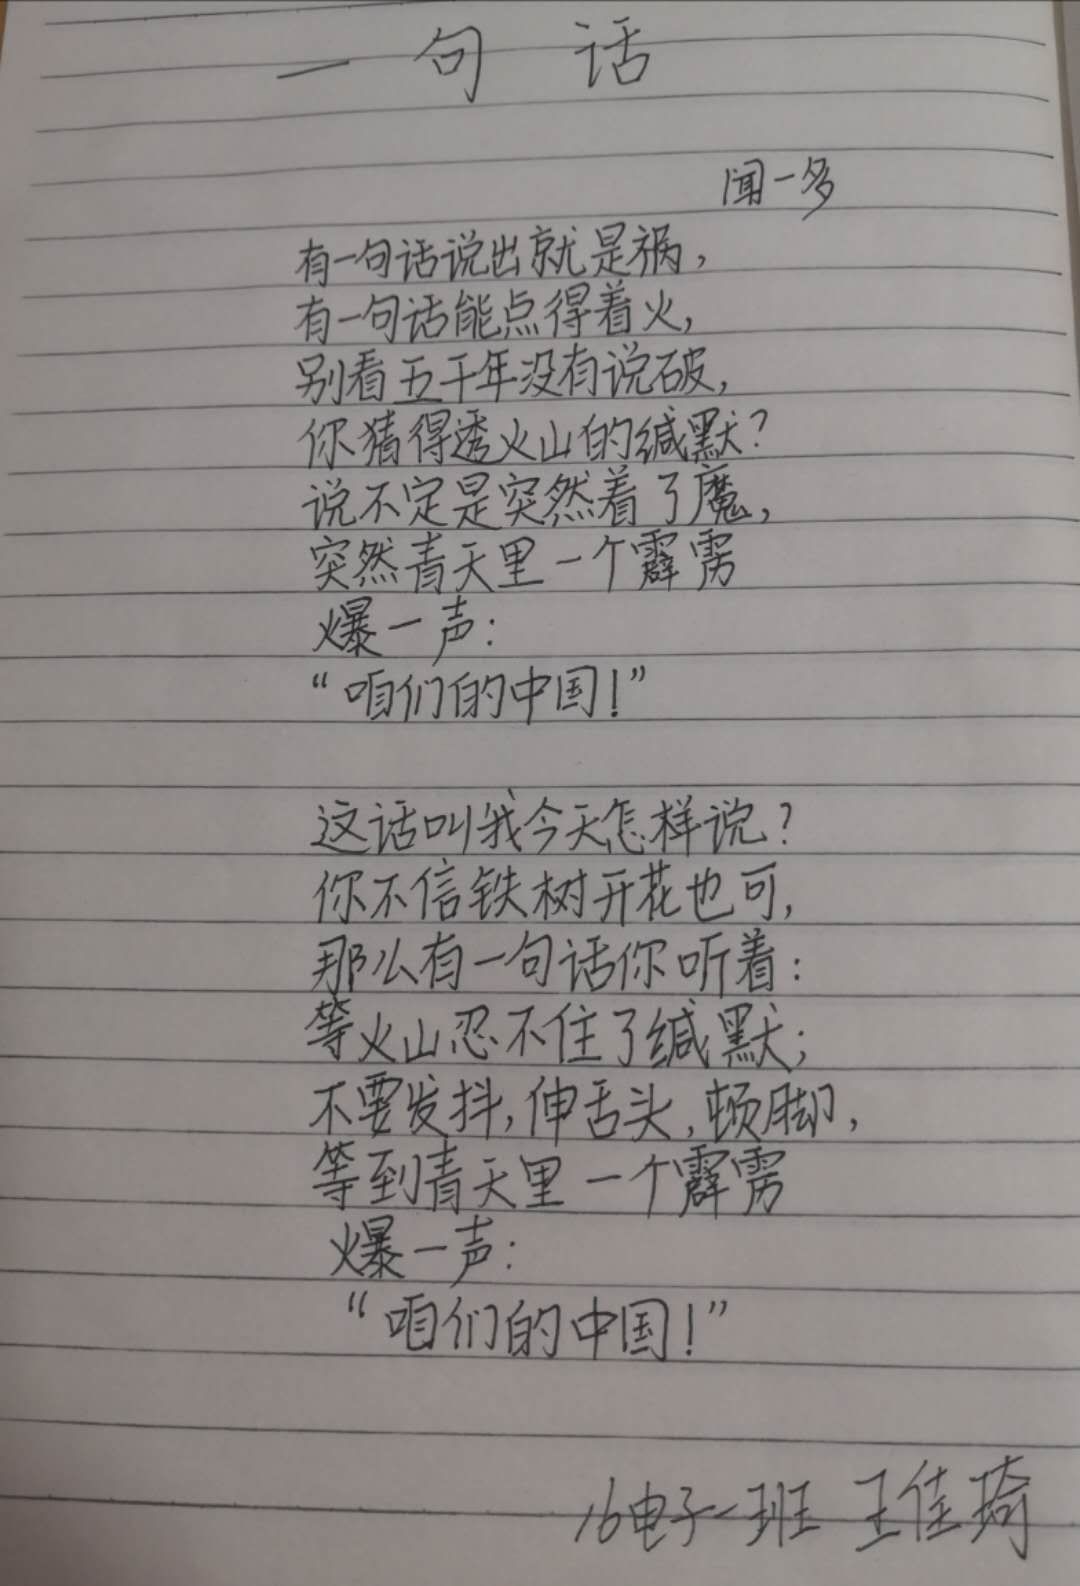 一句话
闻一多
有一句话说出就是祸，
有一句话能点得着火，
别看五千年没有说破，
你猜得透火山的缄默？
说不定是突然着了魔，
突然青天里一个霹雳
爆一声：
“咱们的中国！”
这话叫我今天怎样说？
你不信铁树开花也可，
那么有一句话你听着：
等火山忍不住了缄默；
不要发抖，伸舌头，顿脚，
等到青天里一个霹雳
爆一声：
“咱们的中国！”
16电子一班 王佳琦